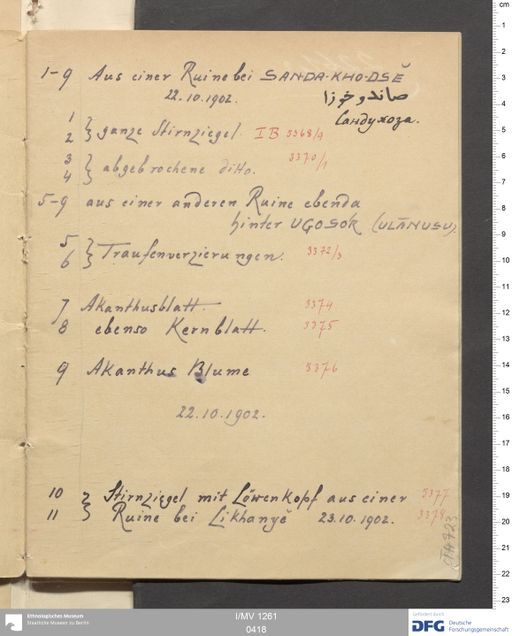 1-9 Aus einer Ruine bei SANDA-KHO-DSĔ
22.10.1902. صاندوخوزا
Сандухоза.
1
2 } ganze Stirnziegel. IB 3368/9
3
4 } abgebrochene ditto. 3370/1
5-9 aus einer anderen Ruine ebenda
hinter UGOSOK (ULĀNUSU).
5
6 } Traufenverzierungen. 3372/3
7 Akanthusblatt. 3374
8 ebenso Kernblatt. 3375
9 Akanthus Blume 3376
22.10.1902.
10 } Stirnziegel mit Löwenkopf aus einer 3377
11 } Ruine bei Likhanyĕ 23.10.1902. 3378
Ethnologisches Museum
Staatliche Museen zu Berlin
I/MV 1261
0418
gefördert durch
DFG Deutsche
Forschungsgemeinschaft
cm
1
2
3
4
5
6
7
8
9
10
11
12
13
14
15
16
17
18
19
20
21
22
23